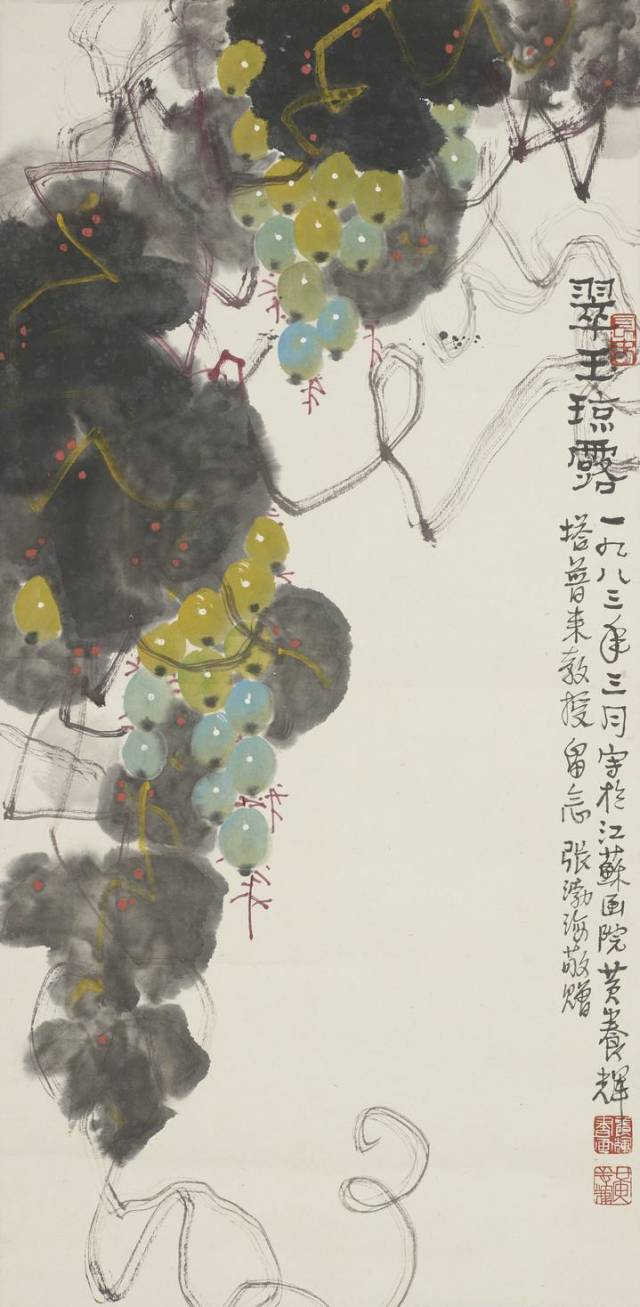 翠玉琼露
一九八三年三月写於江蘇画院 黄養輝
塔普来教授留念 张渤海敬赠